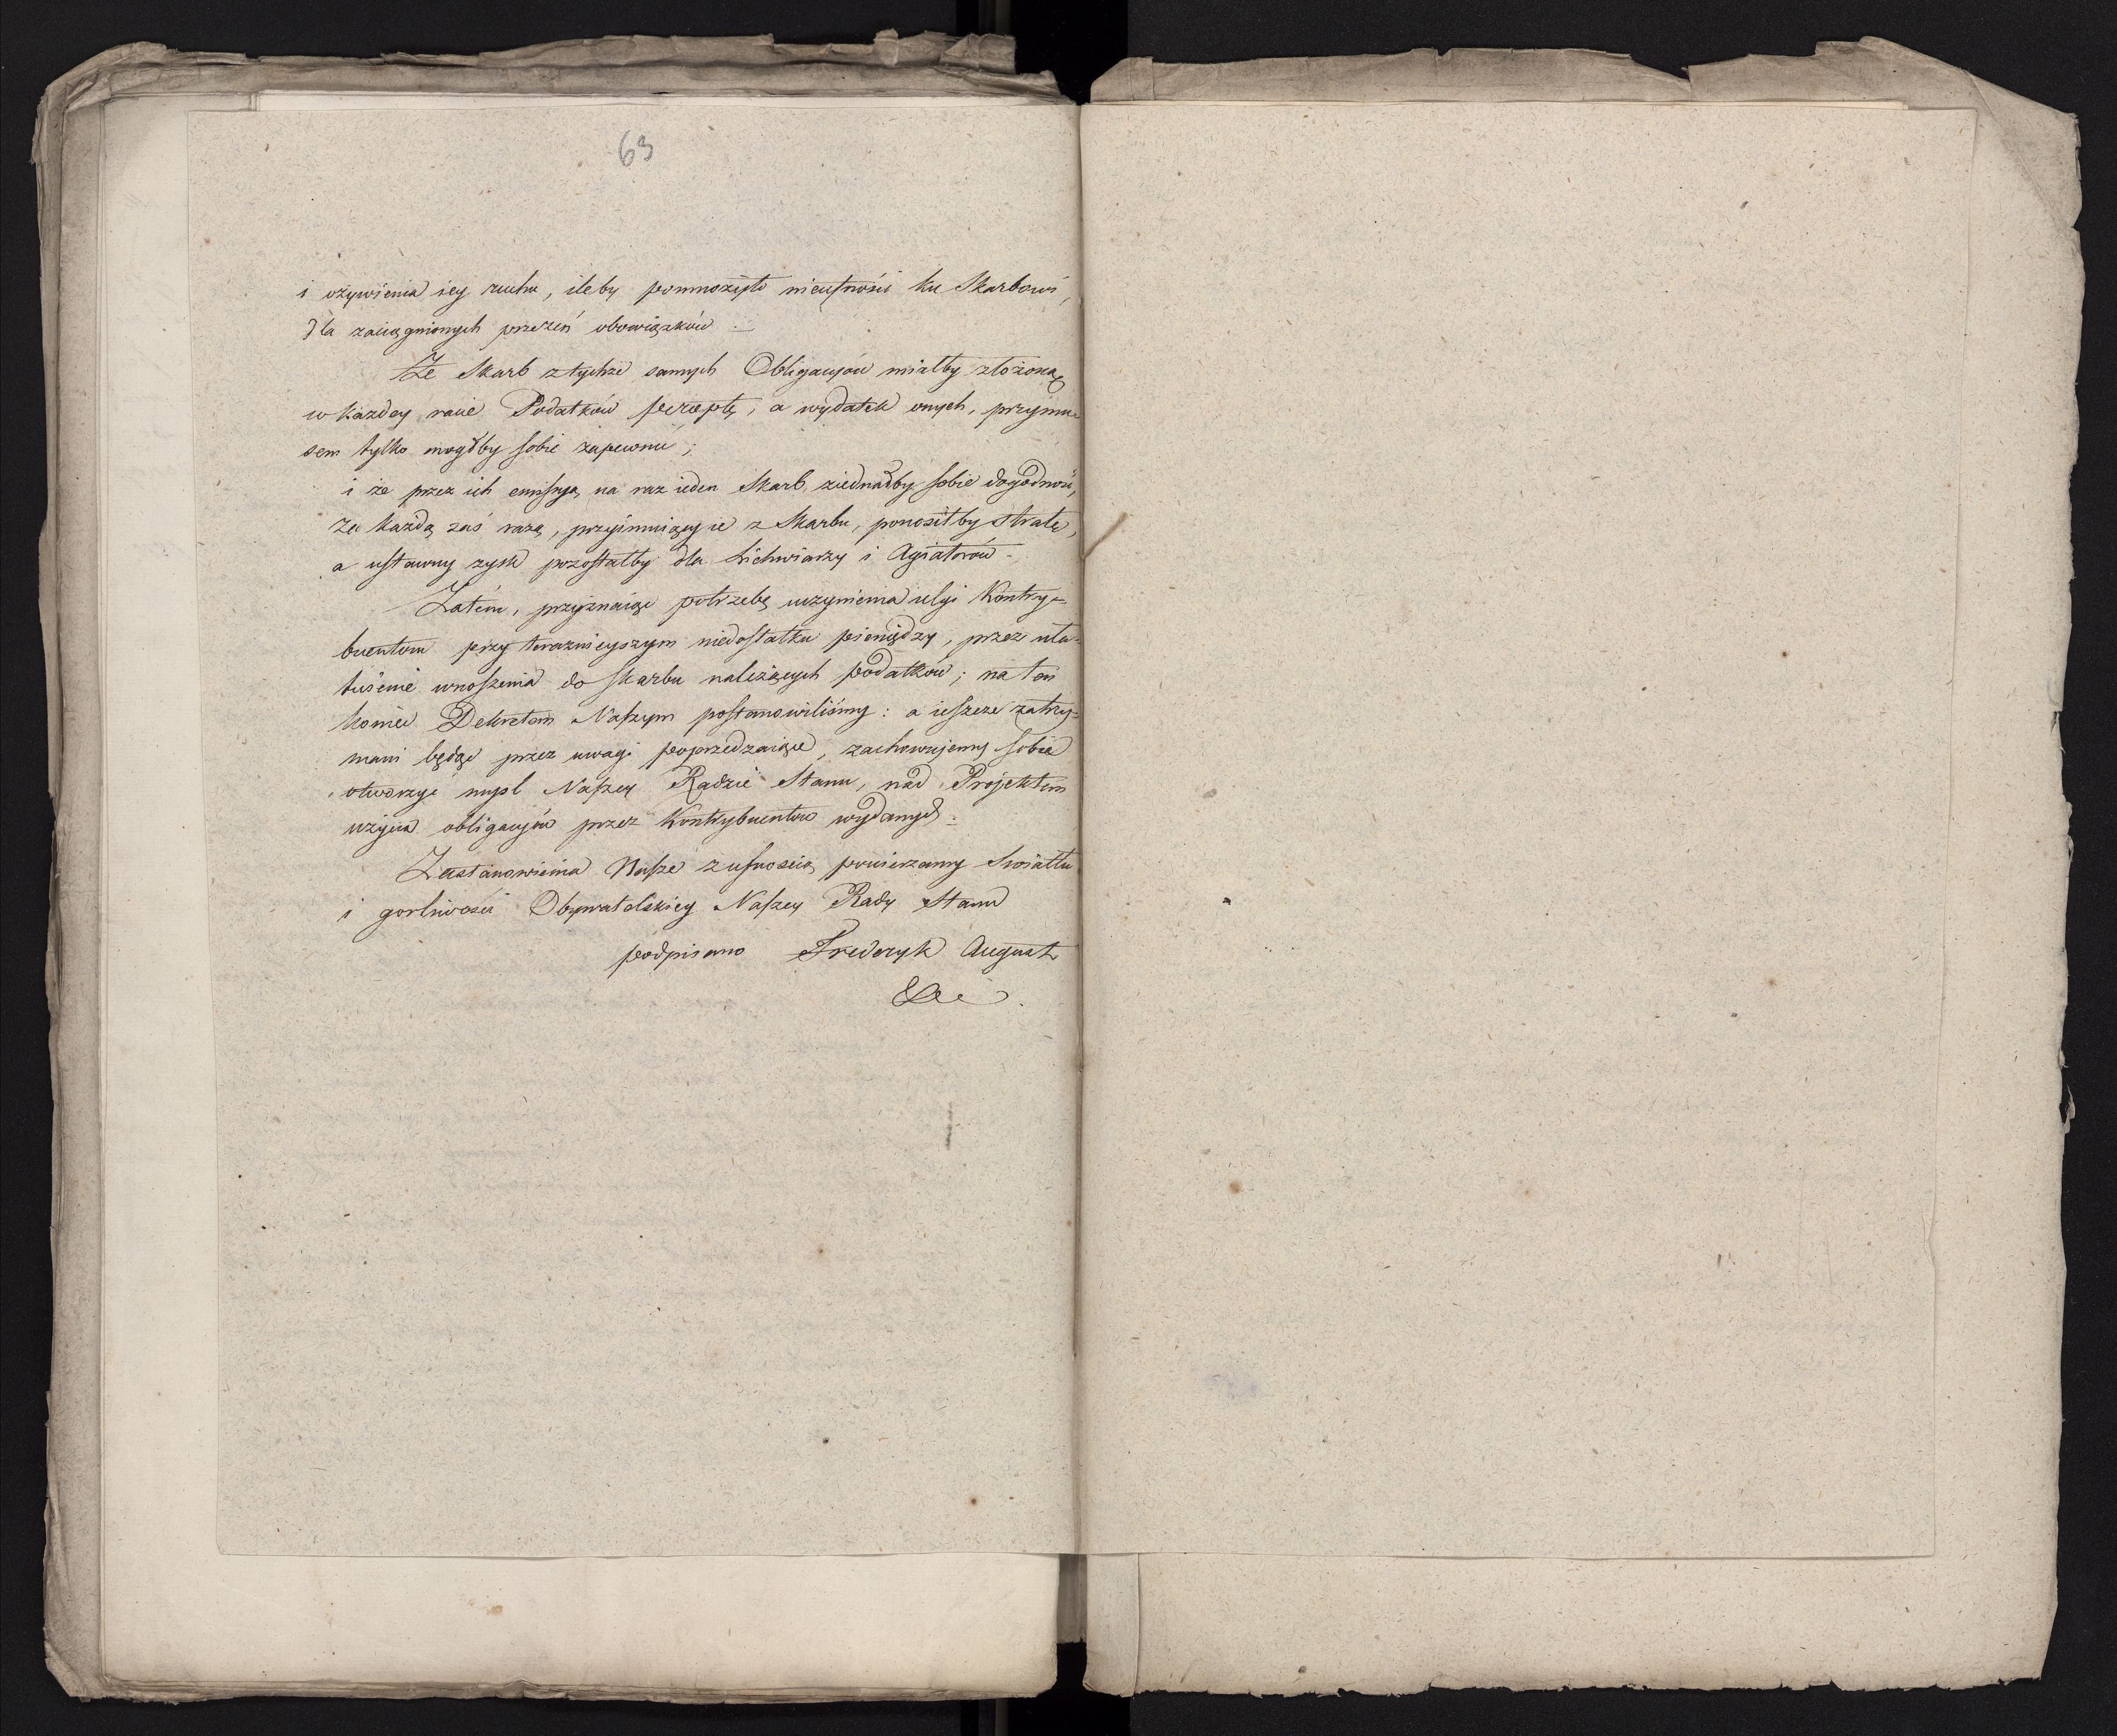 63
i ożywienia iey ruchu, ileby pomnożyło nieufności ku Skarbowi,
dla zaciągnionych przezeń obowiązków
Że Skarb z tychże samych Obligacyów miałby złożoną
w każdey racie Podatków perceptę, a wydatek onych, przymu-
sem tylko mógłby sobie zapewnić;
i że przez ich emissyą na raz ieden Skarb ziednałby sobie dogodność,
za każdą zaś razą, przyimuiący ie z Skarbu, ponosiłby stratę,
a ustawny zysk pozostałby dla Lichwiarzy i Agiatorów.
Zatém, przyznaiąc potrzebę uczynienia ulgi Kontry-
buentom przy teraznieyszym niedostatku pieniędzy, przez uła-
twienie wnoszenia do skarbu należących podatków; na ten
koniec Dekretem Naszym postanowiliśmy: a ieszcze zatrzy-
mani będąc przez uwagi poprzedzaiące, zachowujemy sobie
otworzyć mysl Naszey Radzie Stanu, nad Projektem
użycia obligacyów przez Kontrybuentów wydanych.
Zastanowienia Nasze z ufnoscią powierzamy Swiatłu
i gorliwości Obywatelskiey Naszey Rady Stanu
podpisano Frederyk August